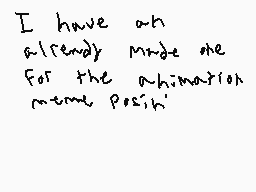 I have an
already made one
for the animation
meme posin'